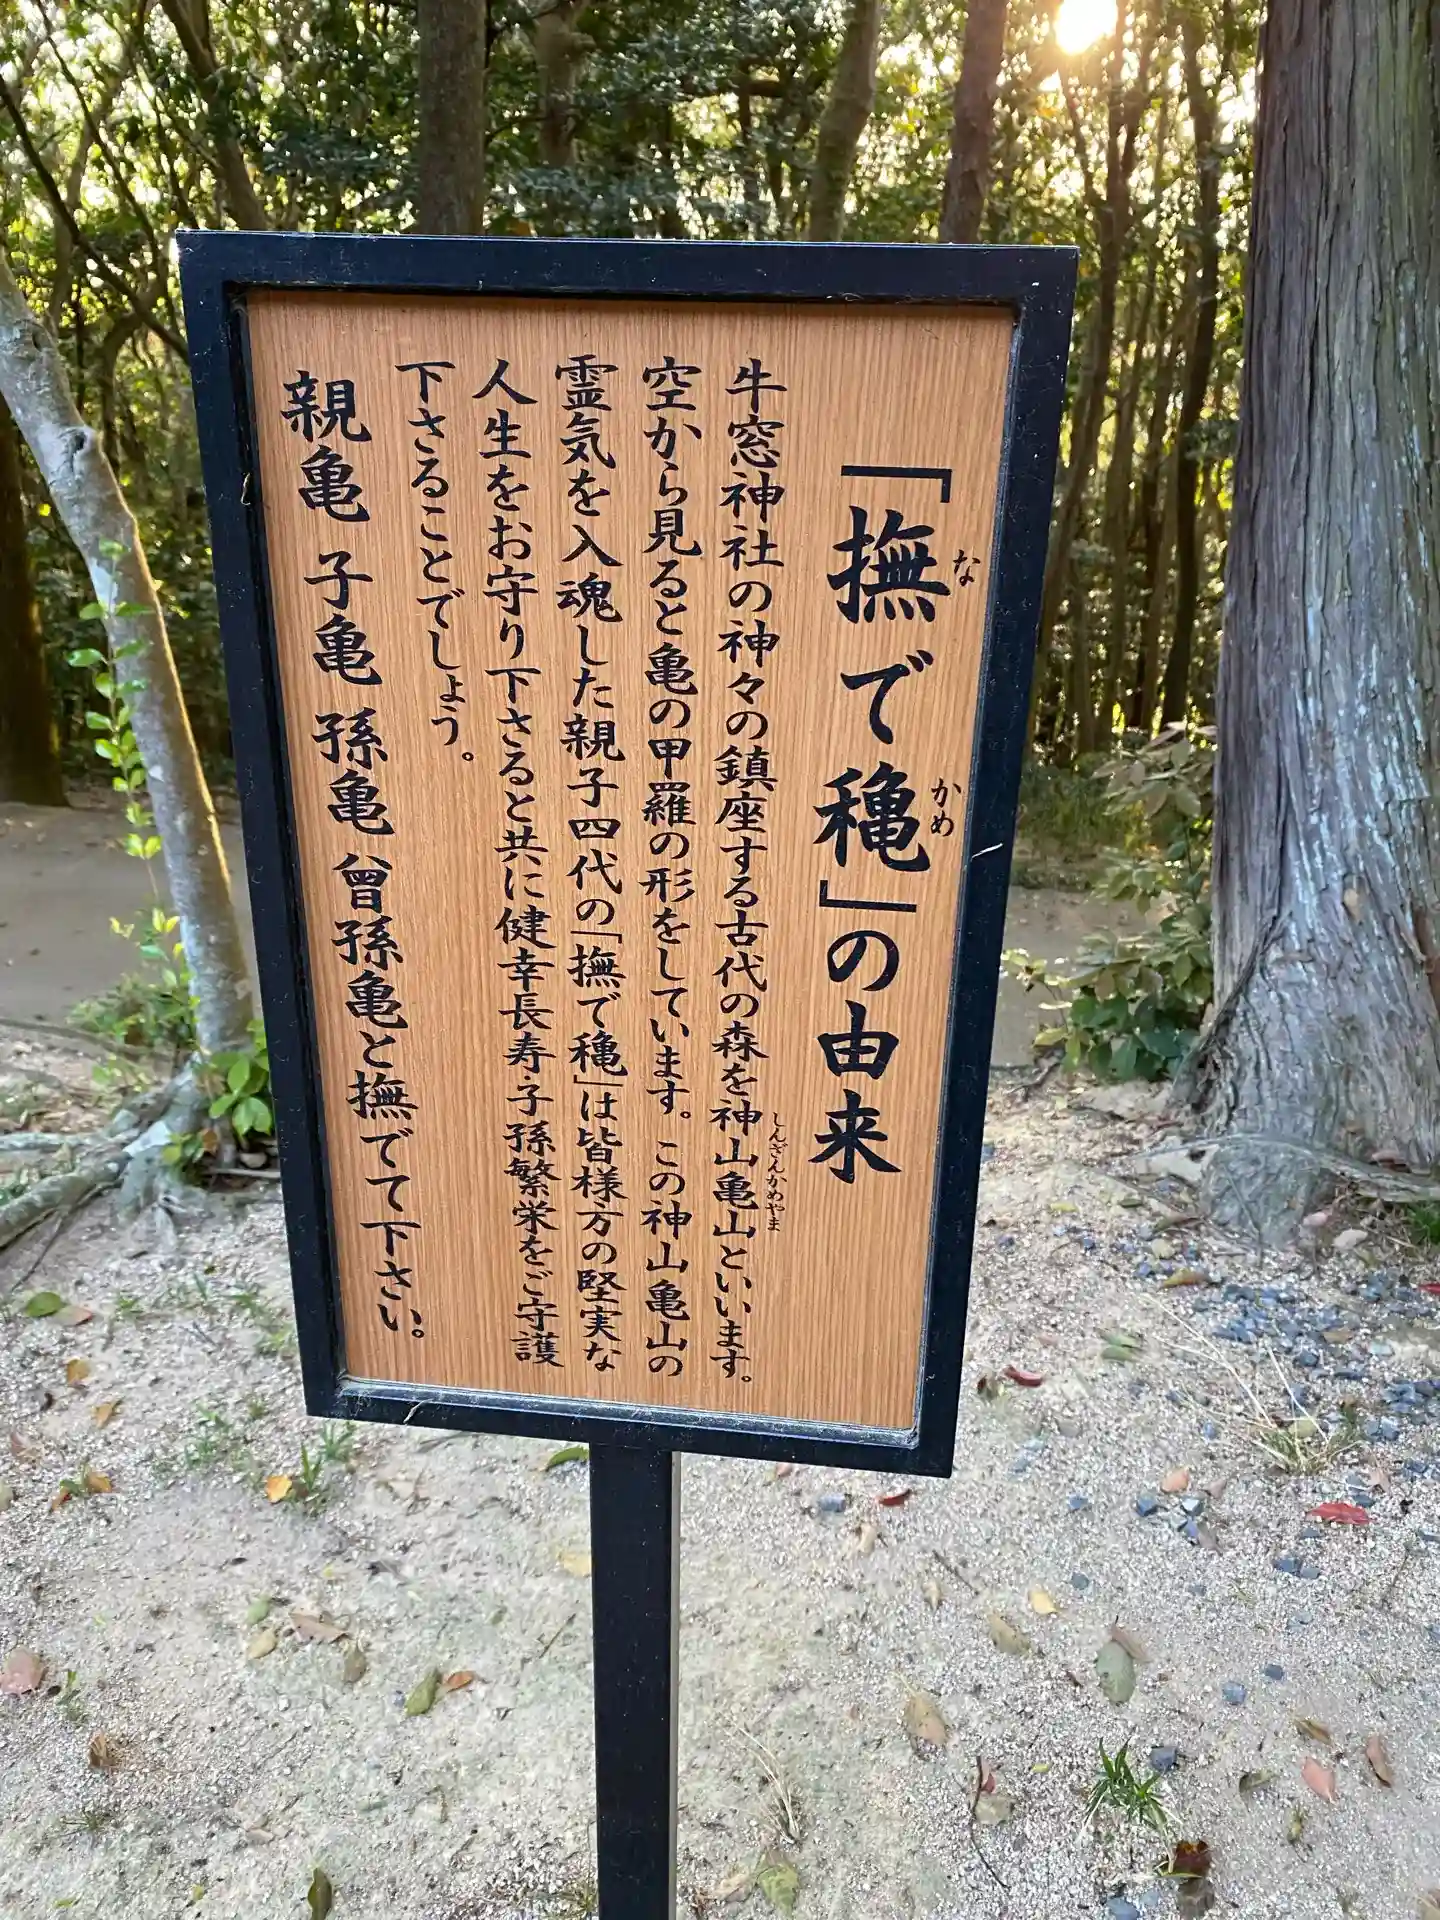 「撫で穐」の由来
な
かめ
牛窓神社の神々の鎮座する古代の森を神山亀山といいます。
しんざんかめやま
空から見ると亀の甲羅の形をしています。この神山亀山の
霊気を入魂した親子四代の「撫で穐」は皆様方の堅実な
人生をお守り下さると共に健幸長寿・子孫繁栄をご守護
下さることでしょう。
親亀 子亀 孫亀 曾孫亀と撫でて下さい。